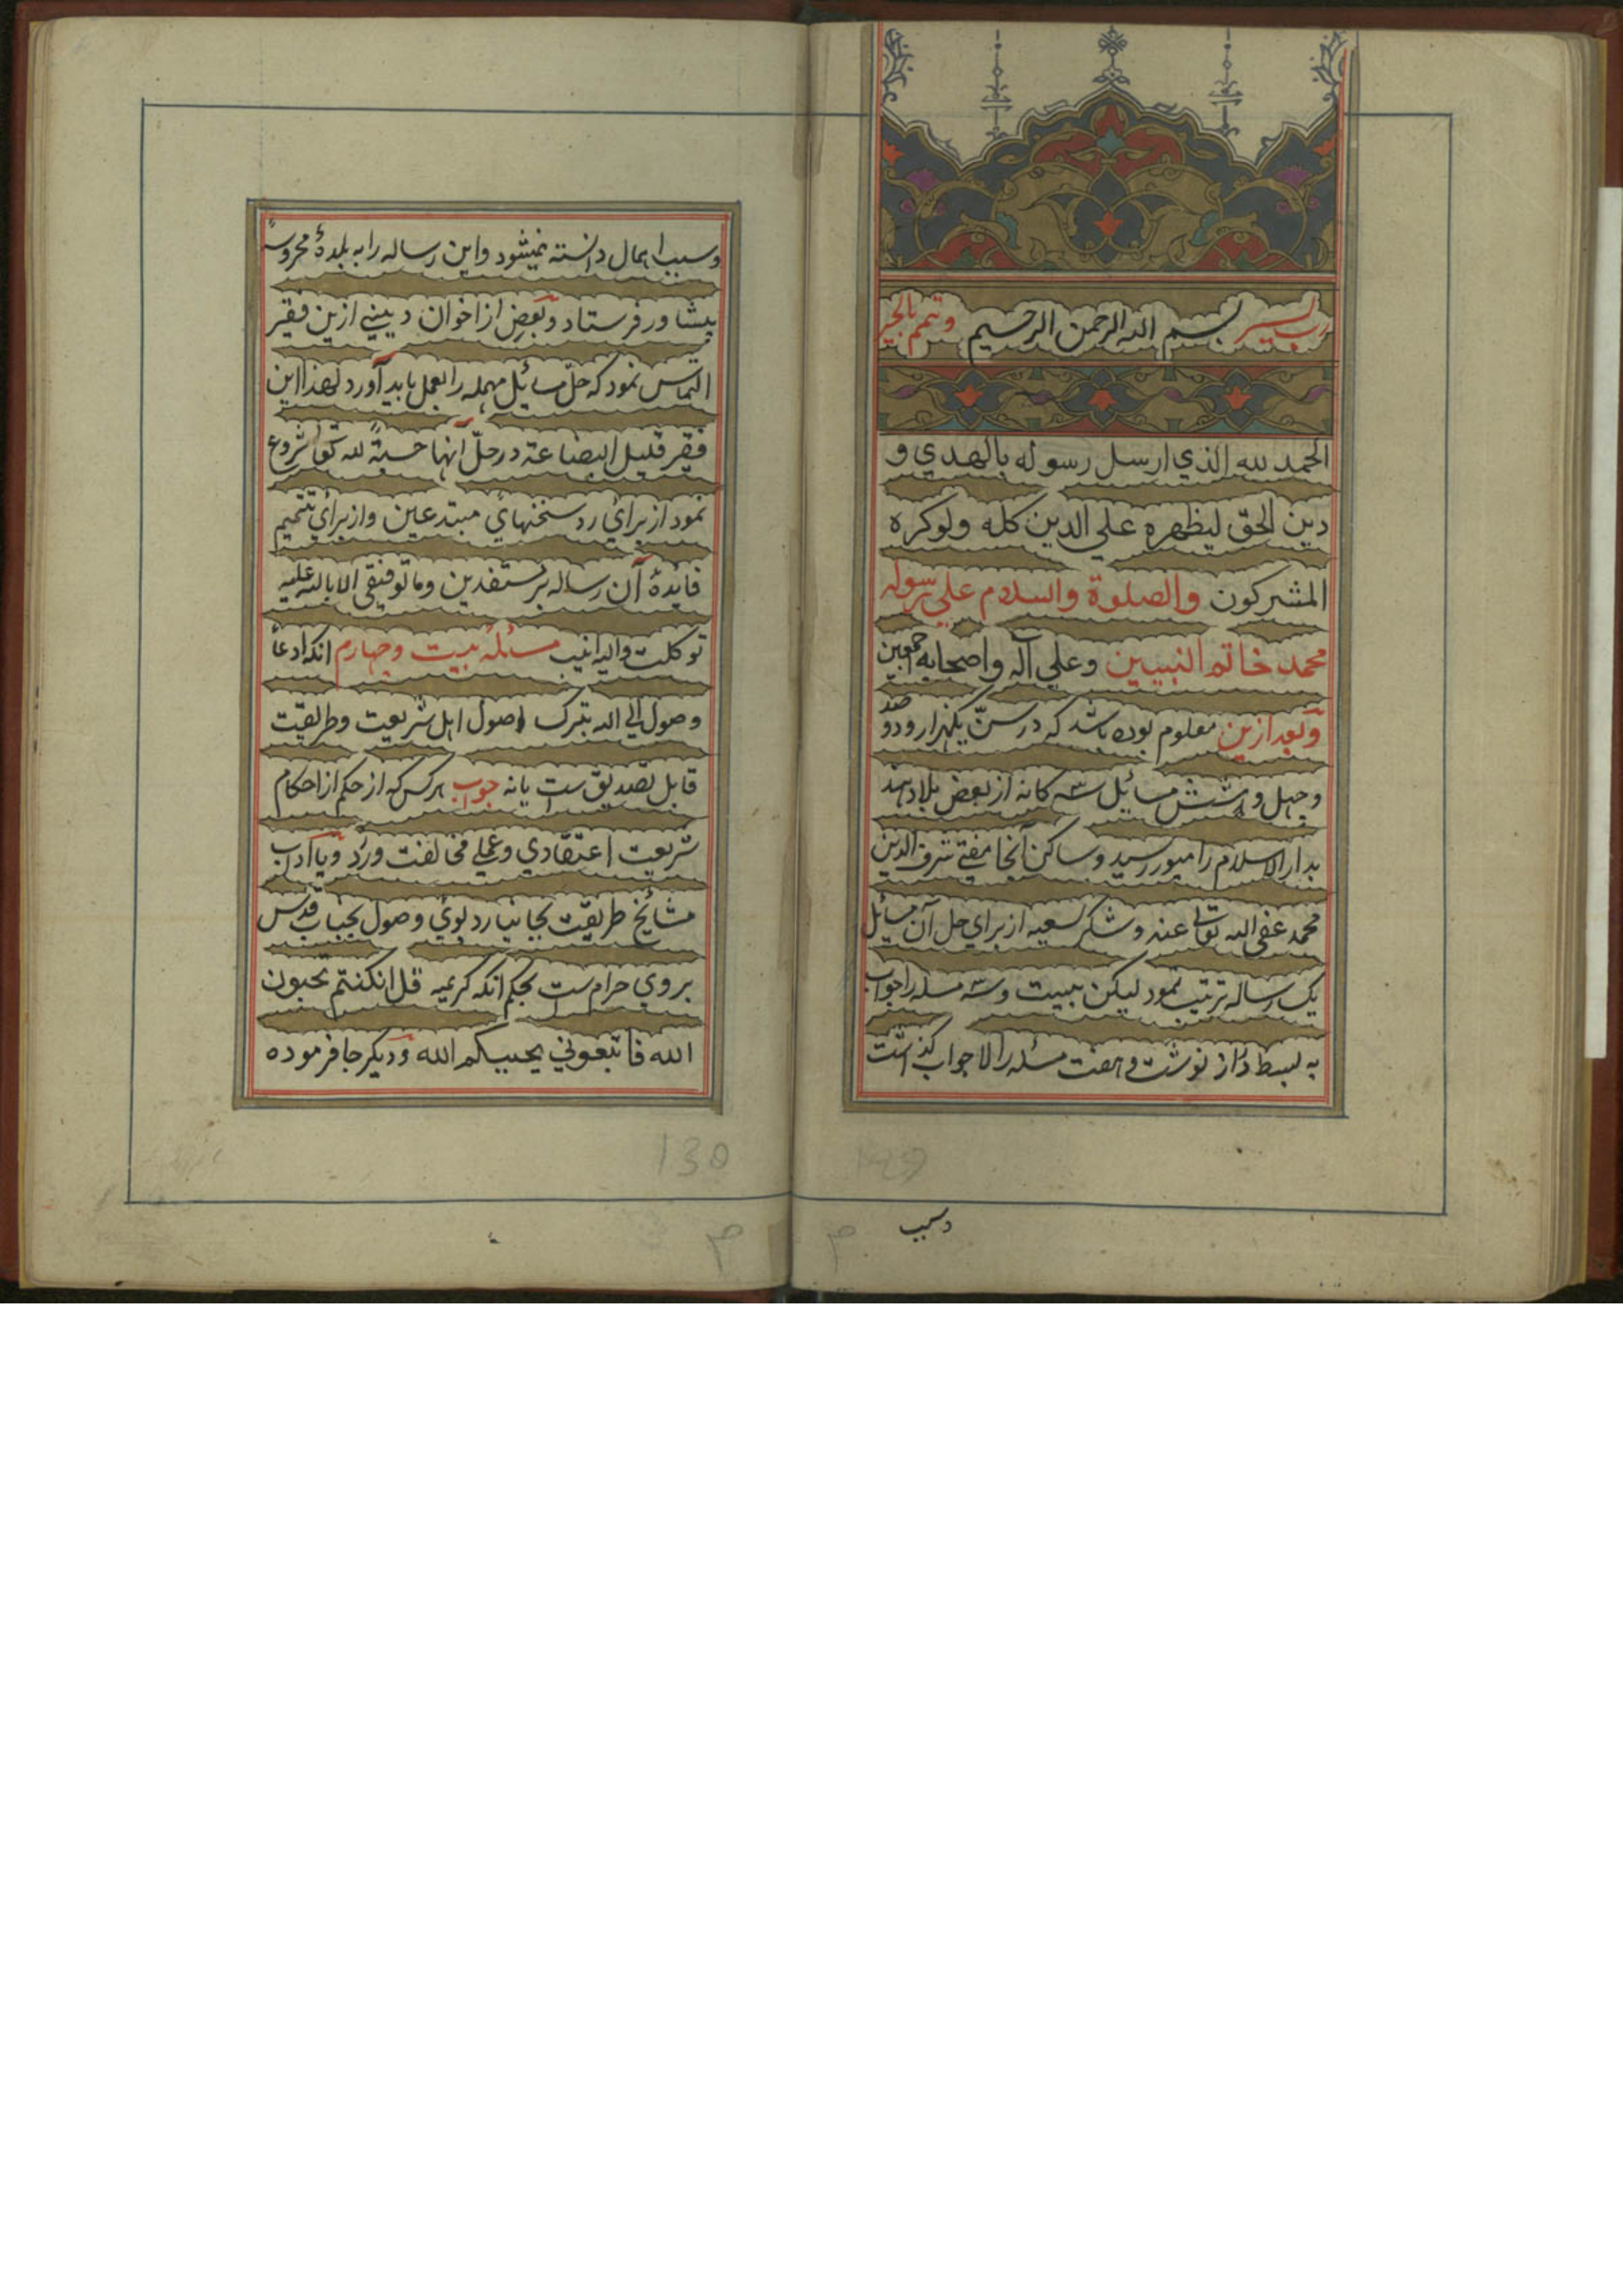 رب یسر بسم الله الرحمن الرحیم وتمم بالخیر
الحمد لله الذي ارسل رسوله بالهدي و
دین الحق لیظهره علي الدین کله ولوکره
المشرکون والصلوة والسلام علي رسوله
محمد خاتم النبیین وعلي آله واصحابه اجمعین
وبعد ازین معلوم بوده باشد که در سنّ یکهزار ودو صد
وچهل وشش مسائل سی کانه از بعض بلاد هند
بدار الاسلام رامپور رسید وساکن آنجا مفتي شرف الدین
محمد عفی الله تعالی عنه وشکر سعیه از براي حل آن مسائل
یک رساله ترتیب نمود لیکن بیست وسه مسئله را جواب
به بسط دراز نوشت وهفت مسئله را لا جواب گذاشت
وسبب
وسبب اهمال دانسته نمیشود واین رساله را به بلدهٔ محروسهٔ
پیشاور فرستاد وبعض از اخوان دیني ازین فقیر
التماس نمود که حلّ مسائل مهمله را بعمل باید آورد لهذا این
فقیر قلیل البضاعة در حلّ آنها حسبةً لله تعا شروع
نمود از براي رد سخنهاي مبتدعین واز براي تتمیم
فایدهٔ آن رساله بر مستفدین وما توفیقي الا بالله علیه
توکلت والیه انیب مسئلهٔ بیست وچهارم انکه ادعاً
وصول الي الله بترک اصول اهل شریعت وطریقت
قابل تصدیق ست یا نه جواب هر کس که از حکم از احکام
شریعت اعتقادي وعملي مخالفت ورزد ویا آداب
مشایخ طریقت بجا نیارد بوي وصول بجناب قدس
بروي حرام ست بحکم انکه کریمه قل انکنتم تحبون
الله فاتبعوني یحببکم الله ودیکر جا فرموده
130